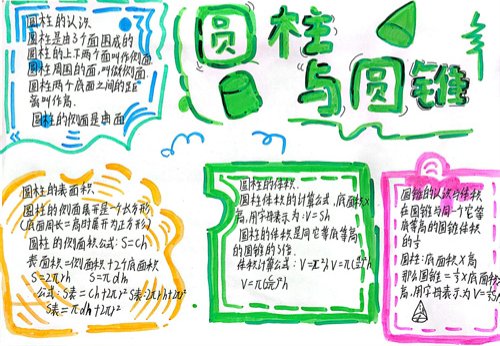 圆柱
与圆锥
圆柱的认识
圆柱是由3个面围成的
圆柱的上下两个面叫作侧面
圆柱周围的面,叫做侧面
圆柱两个底面之间的距
离叫作高.
圆柱的侧面是曲面
圆柱的表面积.
圆柱的侧面展开是一个长方形
(底面周长=高时展开为正方形)
圆柱的侧面积公式:S=Ch
表面积=侧面积+2个底面积
S=2πrh S=πdh
公式:S表=Ch+2πr² S表=2πrh+2πr²
S表=πdh+2πr²
圆柱的体积.
圆柱体积的计算公式,底面积×
高,用字母表示为:V=Sh
圆柱的体积是同它等底等高
的圆锥的3倍.
体积计算公式:V=πr²h
圆锥的认识与体积
在圆锥与同一个它等
底等高的圆锥体积
的⅓
圆柱:底面积×高
那么圆锥=⅓×底面积×
高,用字母表示为V=⅓Sh